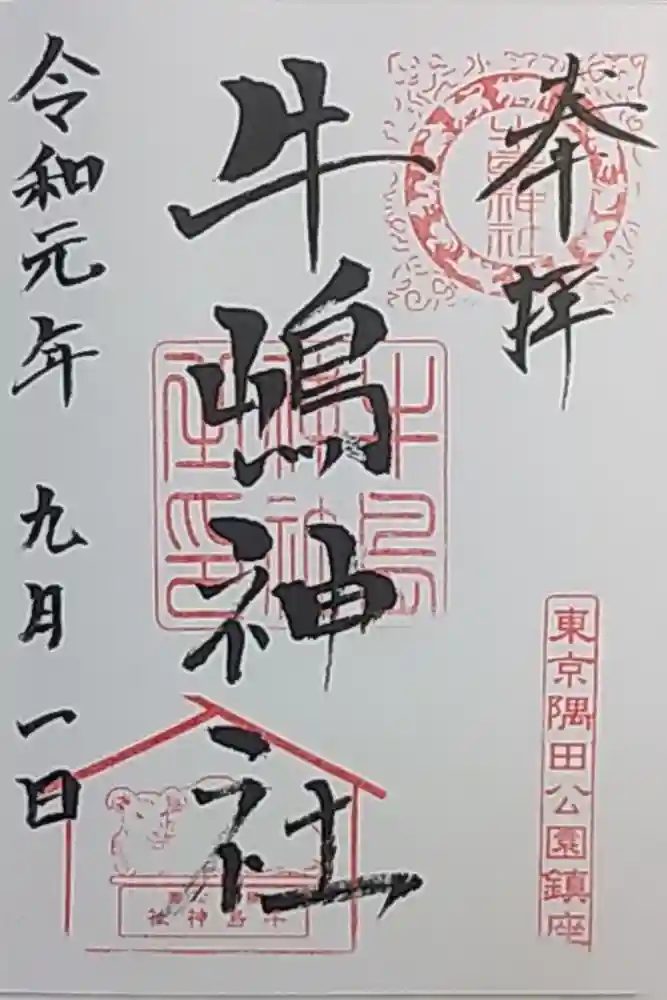 奉拝
牛嶋神社
令和元年 九月一日
東京隅田公園鎮座
牛嶋神社